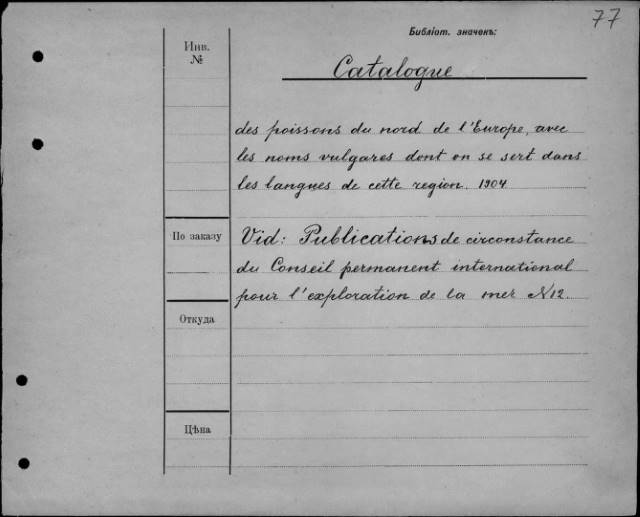 77
Библіот. значекъ:
Инв.
№
Catalogue
des poissons du nord de l'Europe, avec
les noms vulgares dont on se sert dans
les langues de cette region. 1904
По заказу
Vid: Publications de circonstance
du Conseil permanent international
pour l'exploration de la mer N12.
Откуда
Цѣна